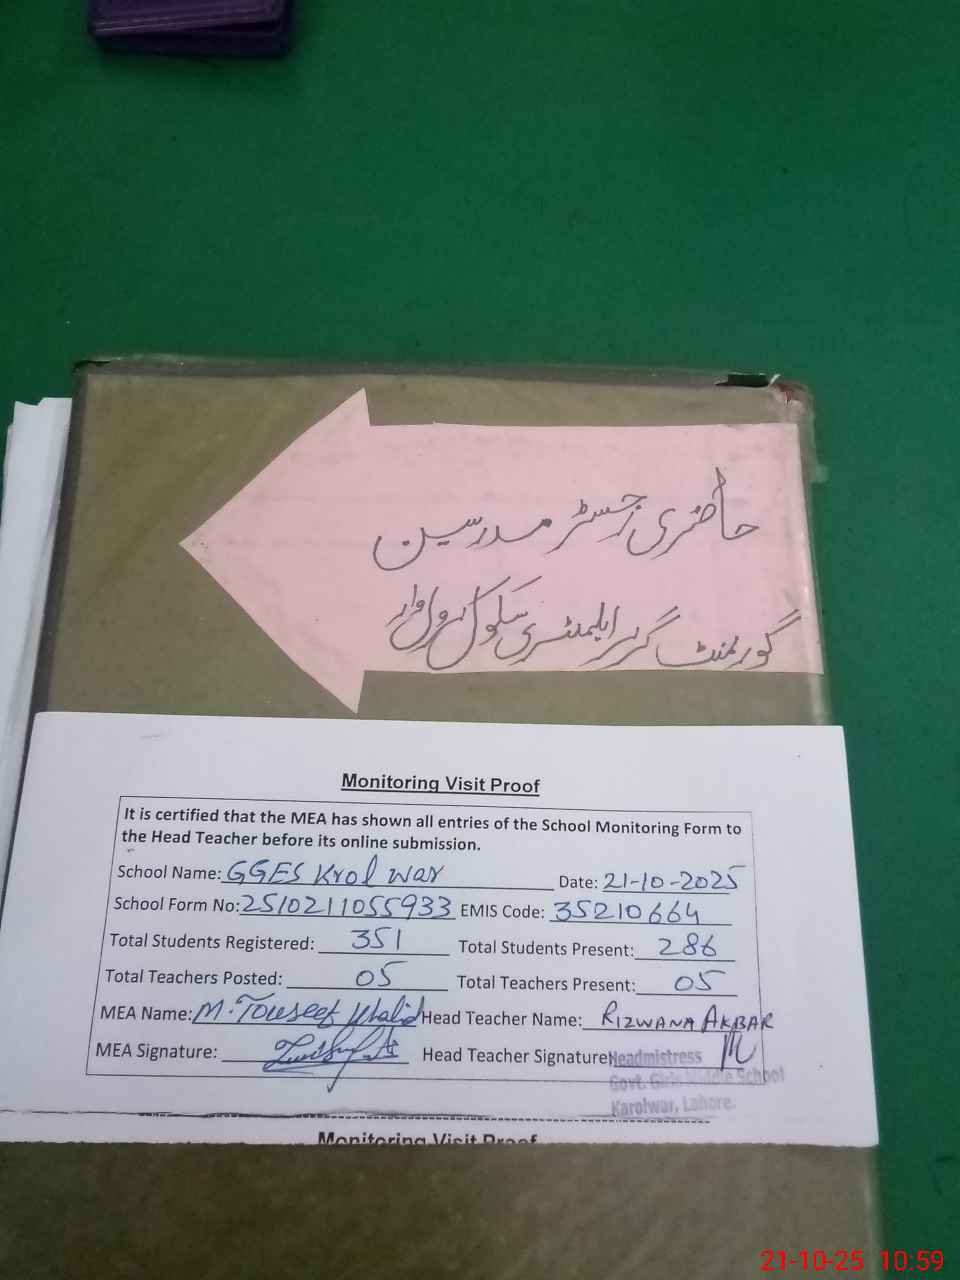 حاضری رجسٹر مدرسین
گورنمنٹ گرلز ایلیمنٹری سکول کرول وار
Monitoring Visit Proof
It is certified that the MEA has shown all entries of the School Monitoring Form to
the Head Teacher before its online submission.
School Name: GGES Krol war Date: 21-10-2025
School Form No: 2510211055933 EMIS Code: 35210664
Total Students Registered: 351 Total Students Present: 286
Total Teachers Posted: 05 Total Teachers Present: 05
MEA Name: M. Touseef Khalid Head Teacher Name: RIZWANA AKBAR
MEA Signature: Head Teacher Signature Headmistress
Govt. Girls Middle School
Karolwar, Lahore.
Monitoring Visit Proof
21-10-25 10:59